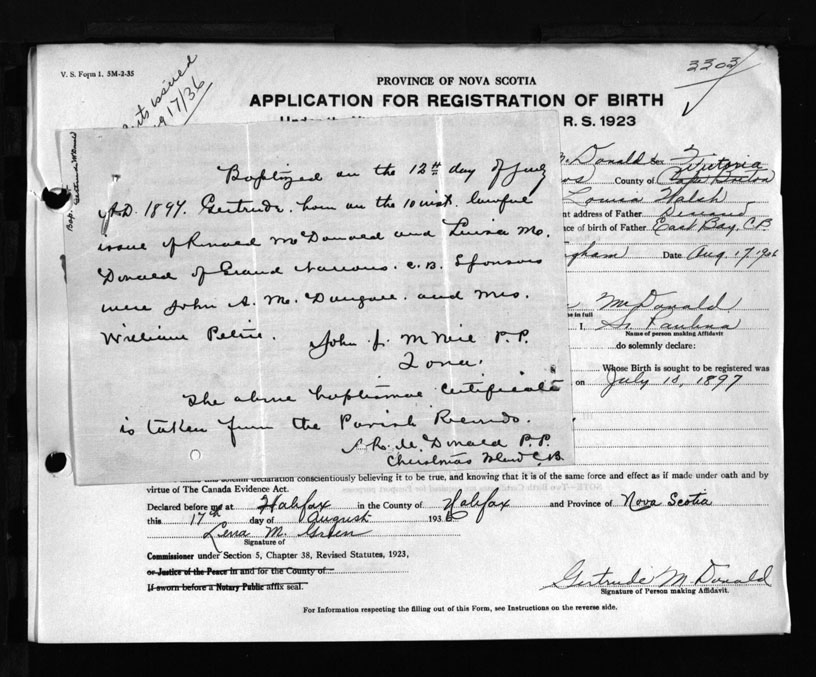 V. S. Form 1. 5M-2-35
issued
17/36
3303
PROVINCE OF NOVA SCOTIA
APPLICATION FOR REGISTRATION OF BIRTH
R. S. 1923
McDonald Sex F
Victoria
County of Cape Breton
Louisa Walsh
nt address of Father Deceased
ace of birth of Father East Bay, C.B.
gham Date Aug. 17, 1936
McDonald
me in full
I, Sr. Paulina
Name of person making Affidavit
do solemnly declare:
Whose Birth is sought to be registered was
on July 10, 1897
Bap.
Gertrude McDonald
Baptized on the 12th day of July
A.D. 1897. Gertrude. born on the 10 inst. lawful
issue of Ronald McDonald and Luisa Mc.
Donald of Grand Narrows. C.B. Sponsors
were John A. Mc. Dougall. and Mrs.
William Petrie. John J. McNeil P.P.
Iona.
The above baptismal Certificate
is taken from the Parish Records.
McDonald P.P.
Christmas Island C.B.
solemn declaration conscientiously believing it to be true, and knowing that it is of the same force and effect as if made under oath and by
virtue of The Canada Evidence Act.
Declared before me at Halifax in the County of Halifax and Province of Nova Scotia
this 17th day of August 1936
Lena M. Green
Signature of
Commissioner under Section 5, Chapter 38, Revised Statutes, 1923,
or Justice of the Peace in and for the County of
If sworn before a Notary Public affix seal.
Gertrude McDonald
Signature of Person making Affidavit.
For Information respecting the filling out of this Form, see Instructions on the reverse side.